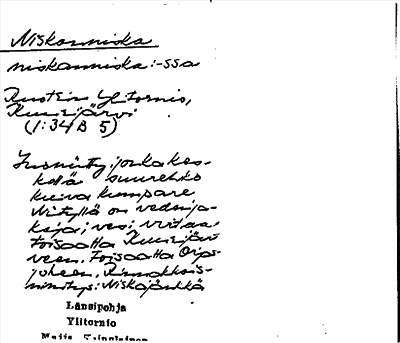 Niskanniska
niskanniska: -ssa
Ylitornio,
Kuusijärvi
(1:34 B 5)
Iso niitty, jonka kes-
kellä suurehko
kuiva kumpare
Niityllä on vedenja-
kaja; vesi virtaa
toisaalta Kuusijär-
veen, toisaalta
jokeen. Rinnakkais-
nimitys: Niskajänkkä
Länsipohja
Ylitornio
Maija